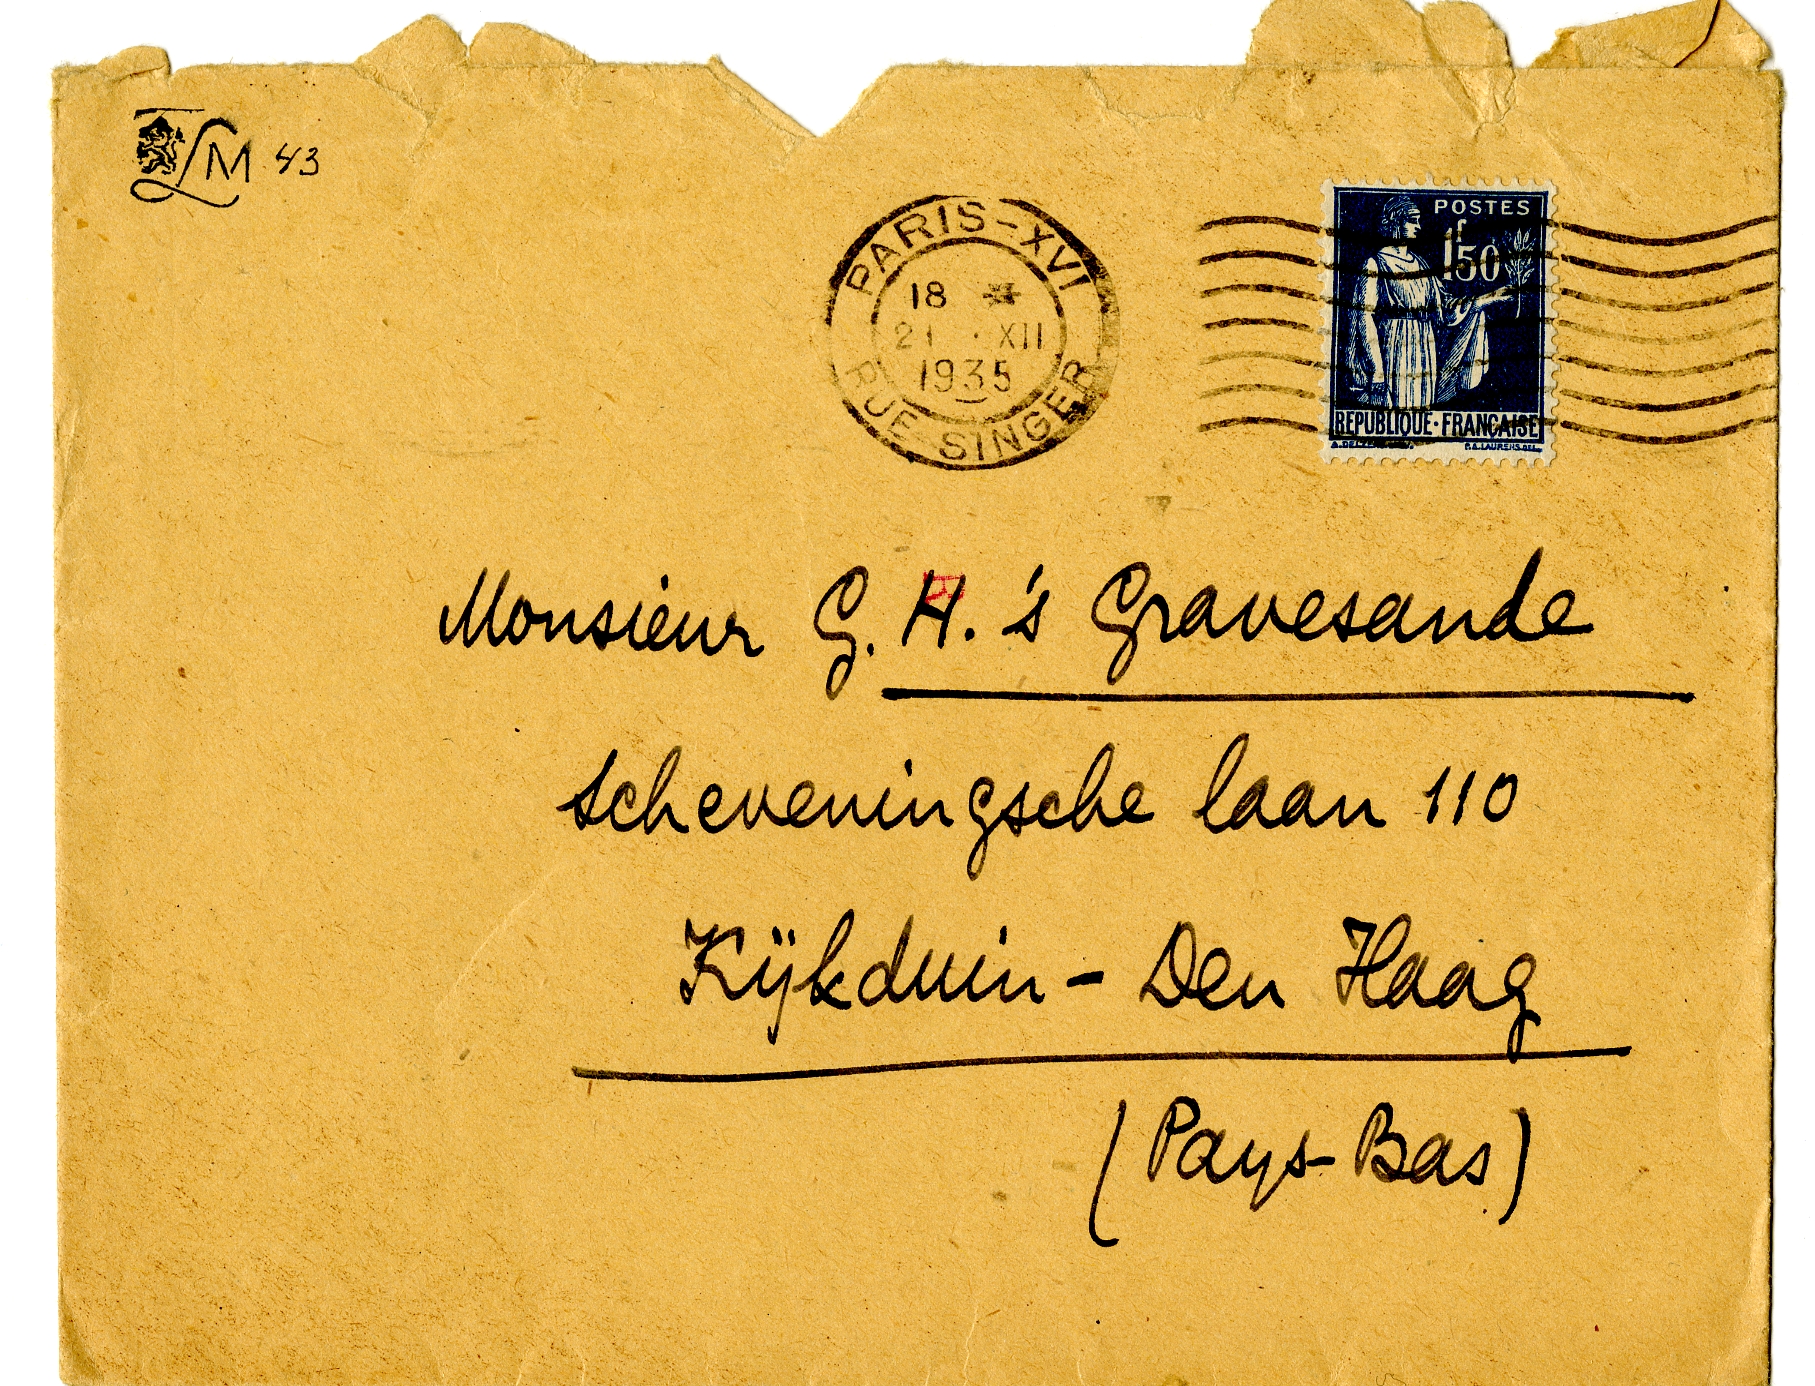 LM 43
PARIS-XVI
18
21 · XII
1935
RUE SINGER
POSTES
1f50
REPUBLIQUE·FRANÇAISE
Monsieur G. H. 's Gravesande
Scheveningsche laan 110
Kijkduin - Den Haag
(Pays-Bas)